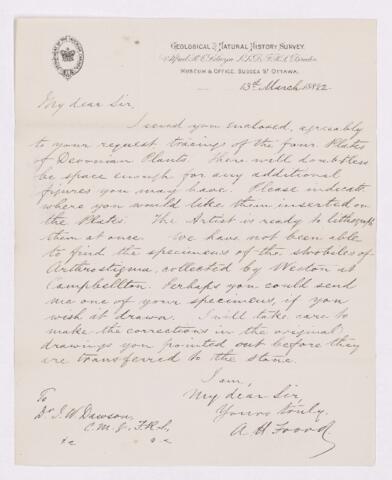 GEOLOGICAL & NATURAL HISTORY SURVEY.
Alfred R. C. Selwyn, L.L.D., F.R.S., Director.
MUSEUM & OFFICE, SUSSEX ST OTTAWA.
13th March 1882.
My dear Sir,
I send you enclosed, agreeably
to your request tracings of the four Plates
of Devonian Plants. There will doubtless
be space enough for any additional
figures you may have. Please indicate
where you would like them inserted on
the Plates. The Artist is ready to lithograph
them at once. We have not been able
to find the specimens of the strobiles of
Arthrostigma, collected by Weston at
Campbellton. Perhaps you could send
me one of your specimens, if you
wish it drawn. I will take care to
make the corrections in the original
drawings you pointed out before they
are transferred to the stone.
I am,
My dear Sir
Yours truly,
A H Foord.
To
Dr. J. W. Dawson,
C. M. G. F.R.S.
&c &c